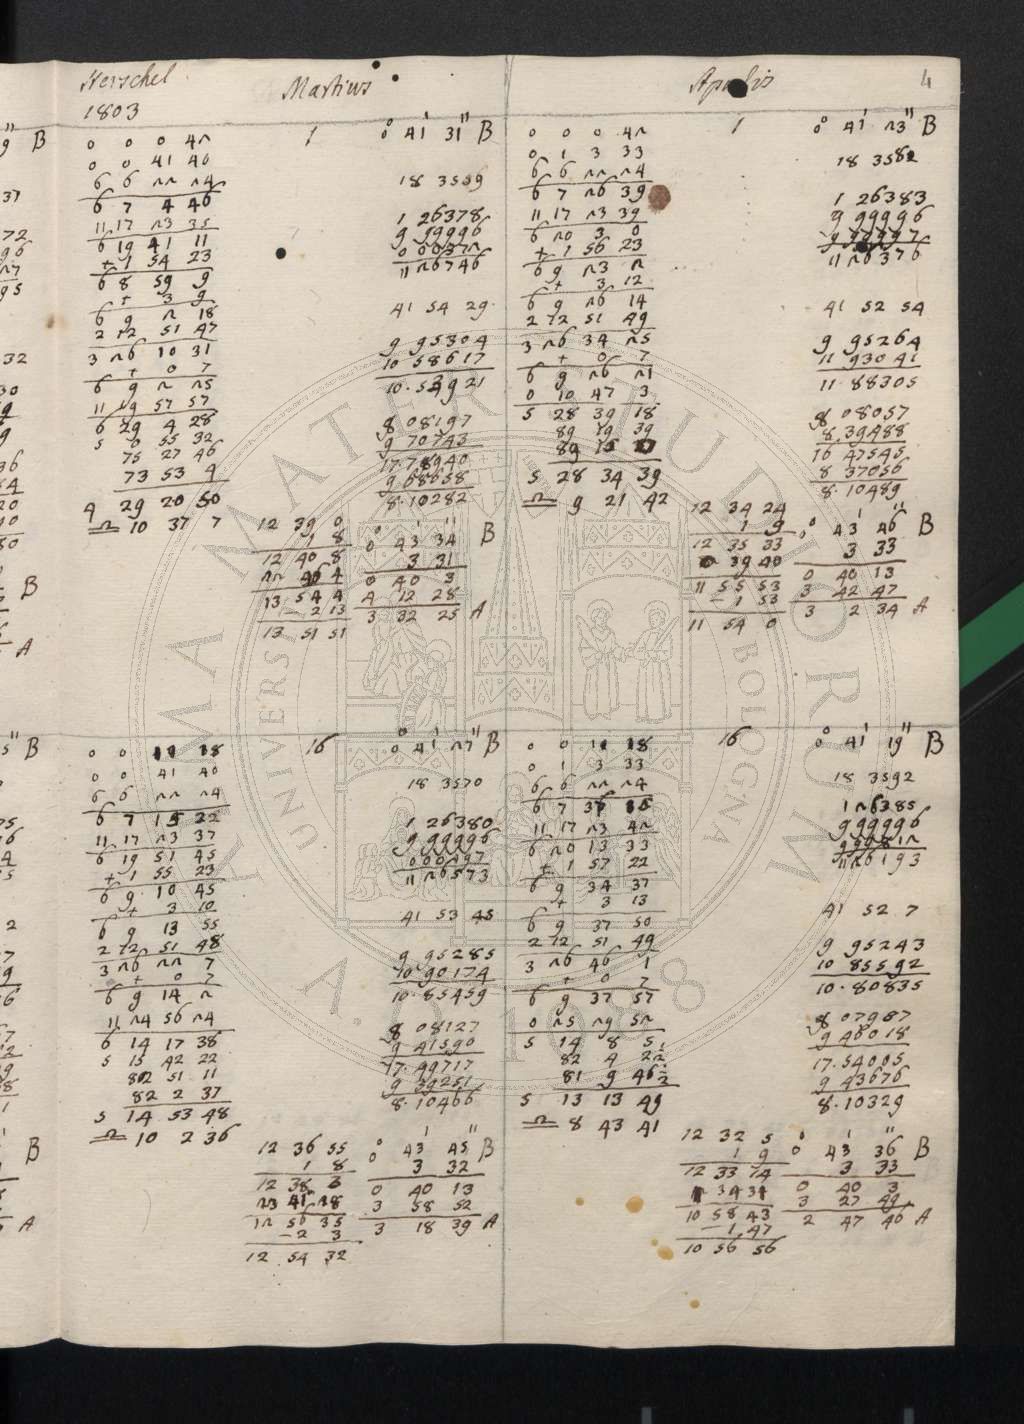 Herschel
1803
Martius
Aprilis
4
1
0° 41' 31" B
0 0 0 42
0 0 41 40
6 6 22 24
6 7 4 46
11 17 23 35
6 19 41 11
+ 1 54 23
6 8 59 9
+ 3 9
6 9 2 18
2 12 51 47
3 26 10 31
+ 0 7
6 9 2 25
11 19 57 57
6 29 4 28
5 0 55 32
75 27 46
73 53 4
4 29 20 50
♎ 10 37 7
18 3559
1 26378
9 99996
0 00372
11 26746
41 54 29
9 95304
10 58617
10.53921
8 08197
9 70743
17.78940
9 68658
8.10282
12 39 0
1 8
12 40 8
13 54 4
- 2 13
13 51 51
0° 43' 34" B
3 31
0 40 3
4 12 28
3 32 25 A
1
0° 41' 23" B
0 0 0 42
0 1 3 33
6 6 22 24
6 7 26 39
11 17 23 39
6 20 3 0
+ 1 56 23
6 9 23 2
+ 3 12
6 9 26 14
2 12 51 49
3 26 34 25
+ 0 7
6 9 26 21
0 10 47 3
5 28 39 18
89 19 39
5 28 34 39
♎ 9 21 42
18 3582
1 26383
9 99996
11 26376
41 52 54
9 95264
11 93041
11.88305
8 08057
8.39488
16 47545
8 37056
8.10489
12 34 24
1 9
12 35 33
11 55 53
- 1 53
11 54 0
0° 43' 46" B
3 33
0 40 13
3 42 47
3 2 34 A
16
0° 41' 27" B
0 0 11 18
0 0 41 40
6 6 22 24
6 7 15 22
11 17 23 37
6 19 51 45
+ 1 55 23
6 9 10 45
+ 3 10
6 9 13 55
2 12 51 48
3 26 22 7
+ 0 7
6 9 14 2
11 24 56 24
6 14 17 38
5 15 42 22
82 51 11
82 2 37
5 14 53 48
♎ 10 2 36
18 3570
1 26380
9 99996
0 00197
11 26573
41 53 45
9 95285
10 90174
10.85459
8 08127
9 41590
17.49717
9 39251
8.10466
12 36 55
1 8
12 38 3
12 56 35
- 2 3
12 54 32
0° 43' 45" B
3 32
0 40 13
3 58 52
3 18 39 A
16
0° 41' 19" B
0 0 11 18
0 1 3 33
6 6 22 24
6 7 37 15
11 17 23 42
6 20 13 33
+ 1 57 22
6 9 34 37
+ 3 13
6 9 37 50
2 12 51 49
3 26 46 1
+ 0 7
6 9 37 57
0 25 29 52
5 14 8 5
82 4 2
81 9 46
5 13 13 49
♎ 8 43 41
18 3592
1 26385
9 99996
9 99812
11 26193
41 52 7
9 95243
10 85592
10.80835
8 07987
9 46018
17.54005
9 43676
8.10329
12 32 5
1 9
12 33 14
10 58 43
- 1 47
10 56 56
0° 43' 36" B
3 33
0 40 3
3 27 49
2 47 46 A
ALMA MATER STUDIORUM
UNIVERSITÀ DI BOLOGNA
A.D. 1088